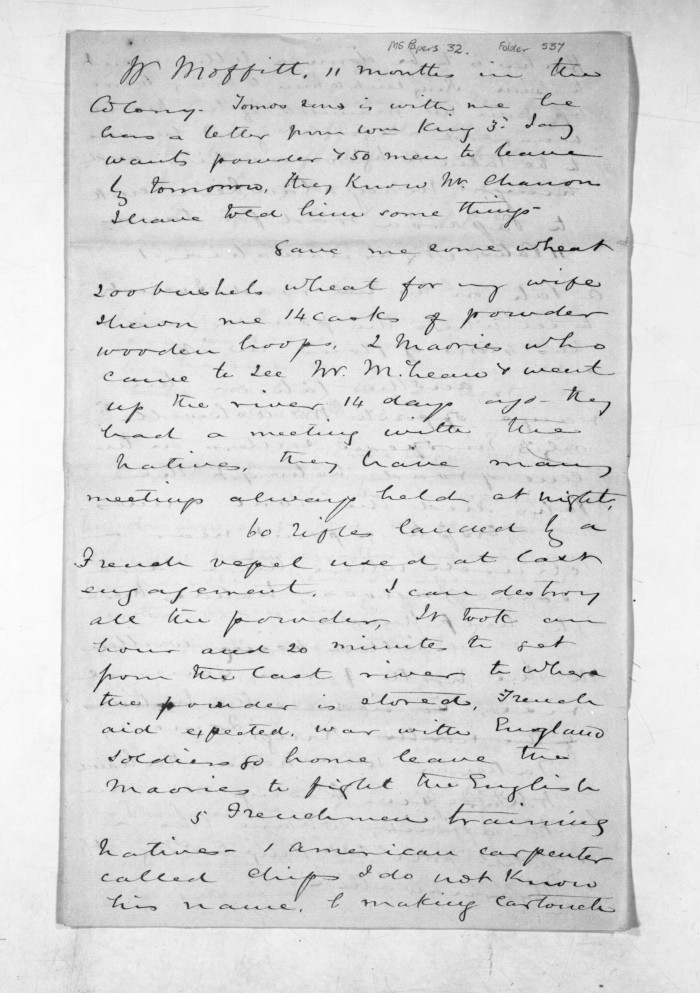 MS Papers 32. Folder 537
W Moffitt. 11 months in the
Colony. Tomos is with me he
has a letter from Wm King 5. Jany
wants powder & 50 men to leave
by tomorrow, they Know Mr.
I have told him some things -
Gave me some wheat
200 bushels wheat for my wife
Shewn me 14 casks of powder
wooden hoops. 2 Maories who
came to see Mr. McLean & went
up the river 14 days ago - they
had a meeting with the
Natives, they have many
meetings always held at night.
60 rifles landed by a
French vessel used at last
engagement. I can destroy
all the powder, It took an
hour and 20 minutes to get
from the last river to where
the powder is stored. French
aid expected. war with England
Soldiers go home leave the
Maories to fight the English
5 Frenchmen training
Natives - 1 American carpenter
called Chips I do not Know
his name. making Cartouch